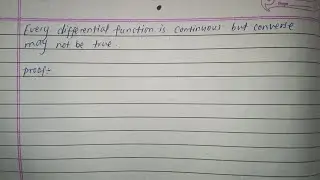 Every differential function is continuous but converse
may not be true.
proof:-